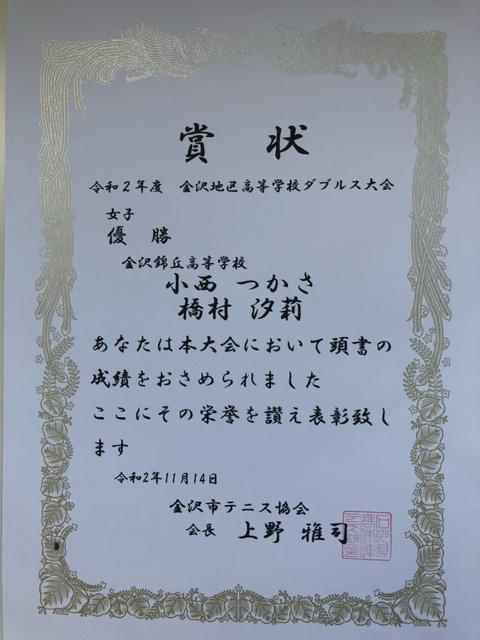 賞状
令和2年度 金沢地区高等学校ダブルス大会
女子
優勝
金沢錦丘高等学校
小西 つかさ
橋村 汐莉
あなたは本大会において頭書の
成績をおさめられました
ここにその栄誉を讃え表彰致し
ます
令和2年11月14日
金沢市テニス協会
会長 上野 雅司